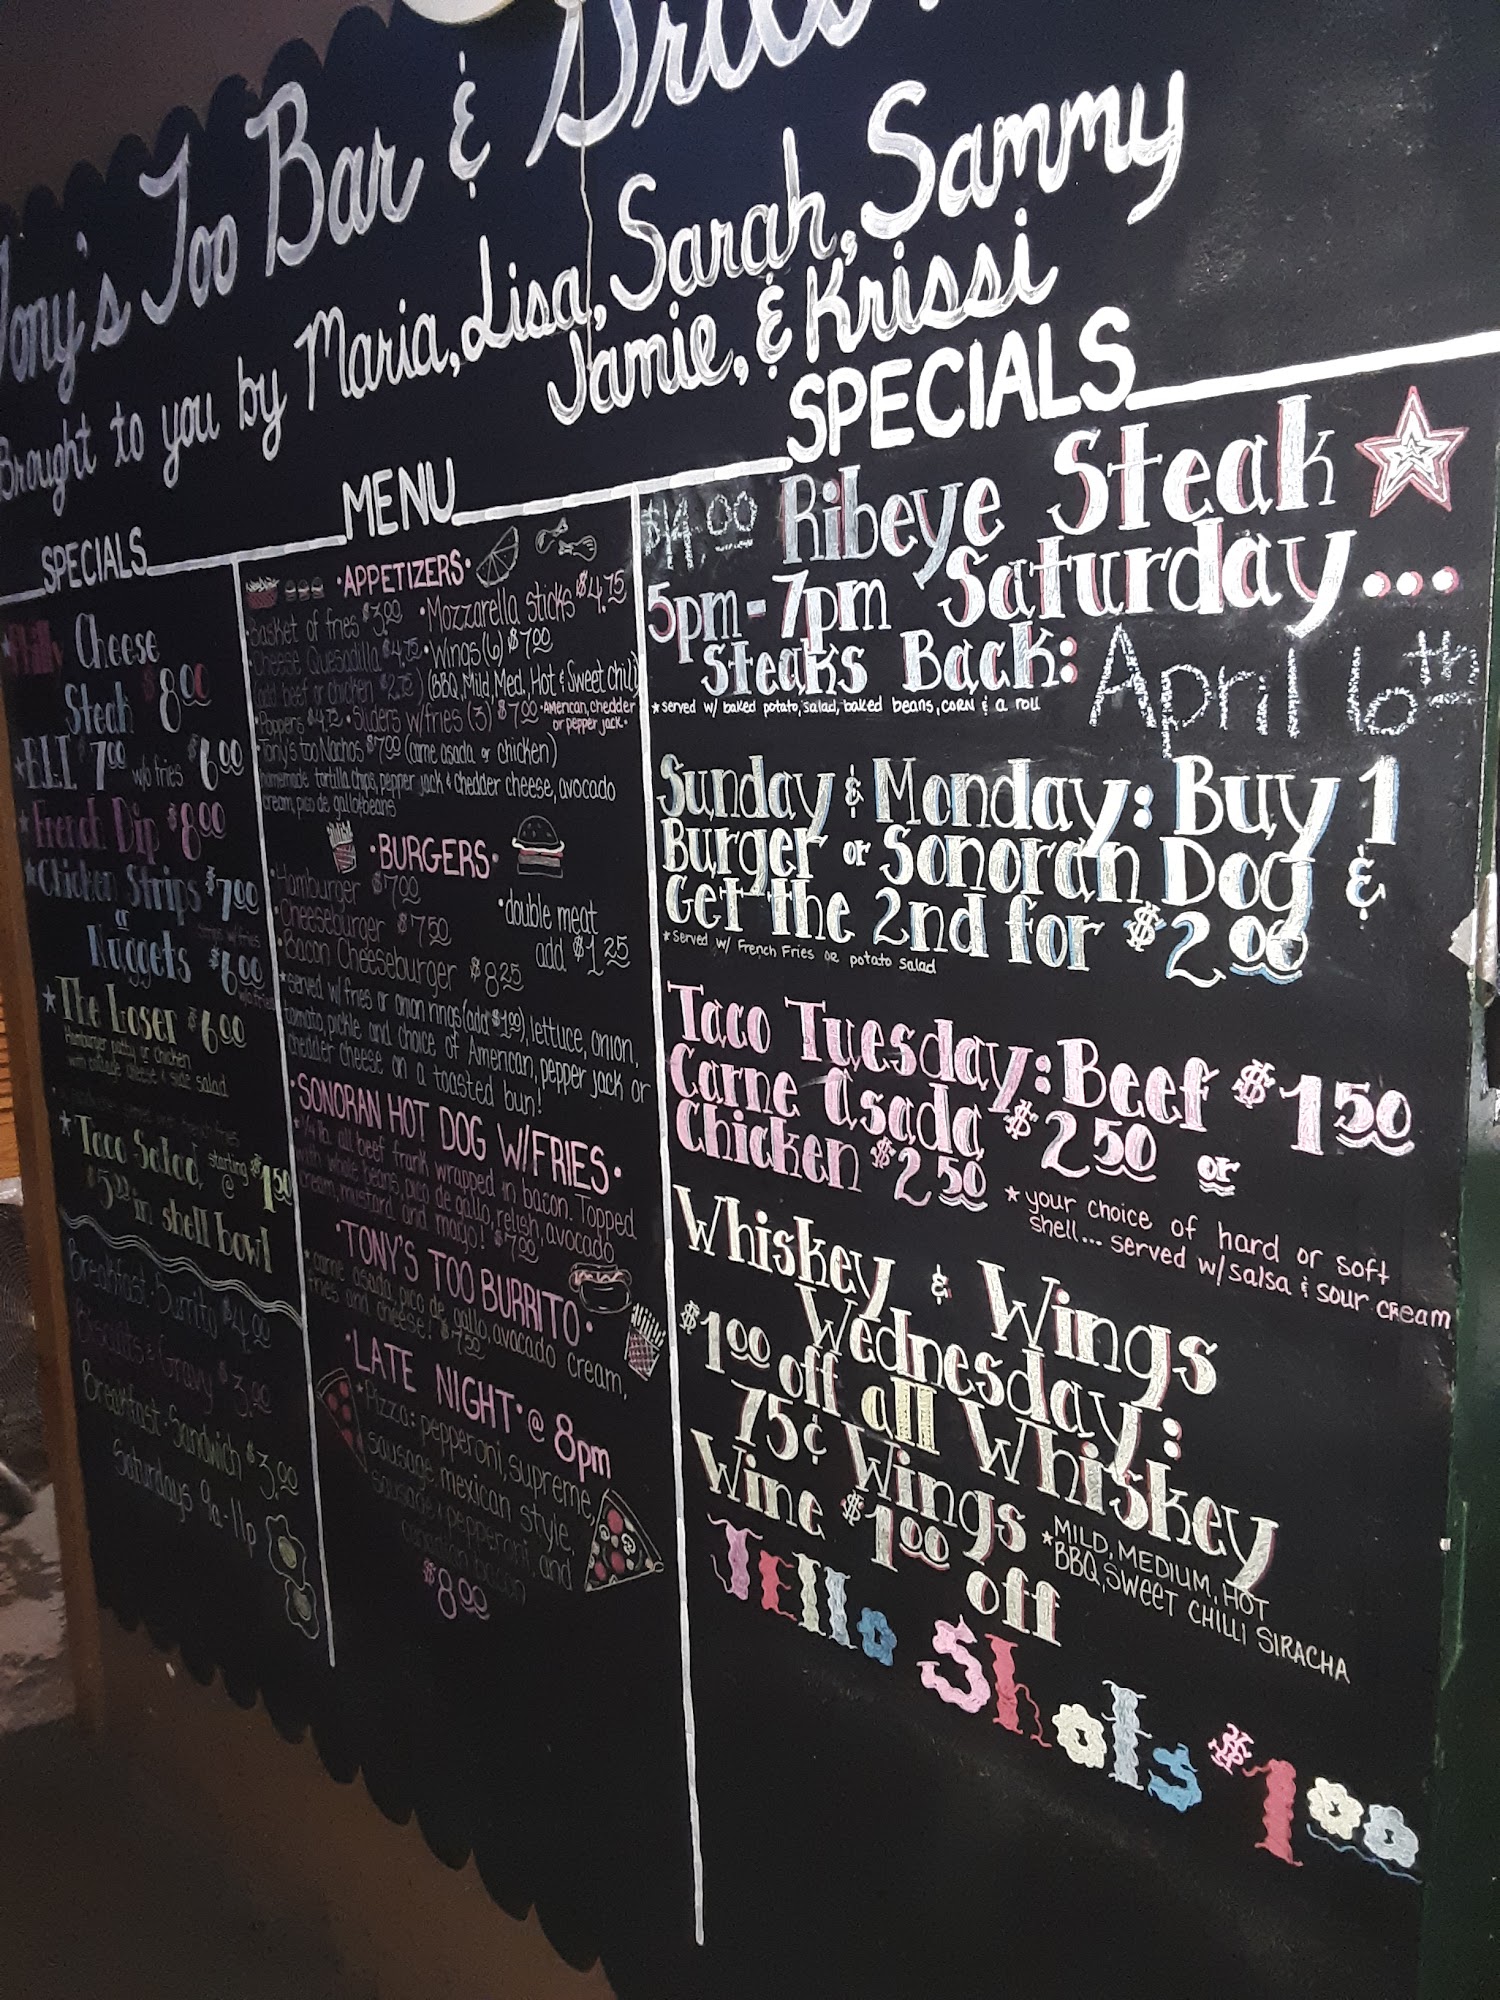 Tony's Too Bar & Grill
Brought to you by Maria, Lisa, Sarah, Sammy
Jamie, & Krissi
SPECIALS
*Philly Cheese
Steak $8.00
*BLT $7.00 w/o fries $6.00
*French Dip $8.00
*Chicken Strips $7.00
or
strips w/ fries
Nuggets $6.00
w/o fries
*The Loser $6.00
Hamburger patty or chicken
with cottage cheese & side salad
*Taco Salad starting @ $1.50
$5.00 in shell bowl
Breakfast Burrito $4.00
Biscuits & Gravy $3.00
Breakfast Sandwich $3.00
Saturdays 9a-11p
MENU
•APPETIZERS•
•Basket of fries $3.00 •Mozzarella sticks $4.75
•Cheese Quesadilla $4.75 •Wings (6) $7.00
(add beef or chicken $2.75) (BBQ, Mild, Med., Hot & Sweet chili)
•Poppers $4.75 •Sliders w/fries (3) $7.00 •American, chedder
or pepper jack•
•Tony's too Nachos $7.00 (carne asada or chicken)
homemade tortilla chips, pepper jack & chedder cheese, avocado
cream, pico de gallo & beans
•BURGERS•
•Hamburger $7.00
•Cheeseburger $7.50
•double meat
add $1.25
•Bacon Cheeseburger $8.25
*served w/ fries or onion rings (add $1.00), lettuce, onion,
tomato, pickle and choice of American, pepper jack or
chedder cheese on a toasted bun!
•SONORAN HOT DOG W/FRIES•
•1/4 lb. all beef frank wrapped in bacon. Topped
with whole beans, pico de gallo, relish, avocado
cream, mustard and mayo! $7.00
•TONY'S TOO BURRITO•
*carne asada, pico de gallo, avocado cream,
fries and cheese! $7.50
•LATE NIGHT• @ 8pm
*Pizza: pepperoni, supreme,
sausage, mexican style,
sausage & pepperoni, and
canadian bacon
$8.00
SPECIALS
$14.00 Ribeye Steak
5pm-7pm Saturday...
Steaks Back: April 16th
*served w/ baked potato, salad, baked beans, corn & a roll
Sunday & Monday: Buy 1
Burger or Sonoran Dog &
Get the 2nd for $2.00
*Served w/ French Fries or potato salad
Taco Tuesday: Beef $1.50
Carne Asada $2.50 or
Chicken $2.50
*your choice of hard or soft
shell... served w/ salsa & sour cream
Whiskey & Wings
Wednesday:
$1.00 off all Whiskey
75¢ Wings
*MILD, MEDIUM, HOT
BBQ, SWEET CHILLI SIRACHA
Wine $1.00 off
Jello Shots $1.00